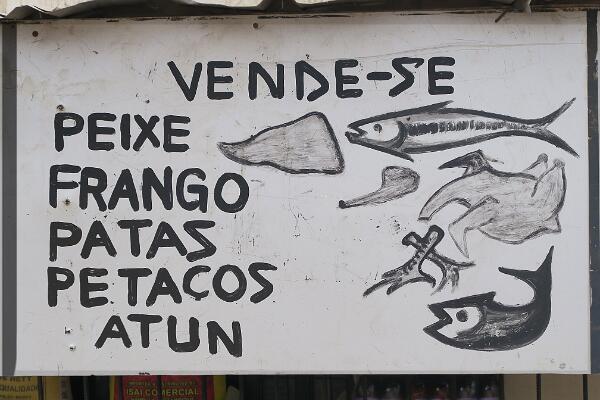 VENDE-SE
PEIXE
FRANGO
PATAS
PETACOS
ATUN
QUALIDADE
ISAI COMERCIAL